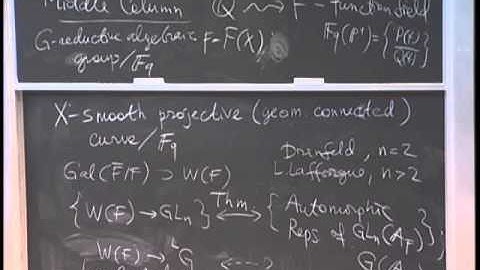 Middle Column Q ⟿ F - function field
G-reductive algebraic group/F_q F = F(X); F_q(P¹) = {P(t)/Q(t)}
X-smooth projective (geom connected)
curve/F_q
Drinfeld, n=2
Gal(F̄/F) ⊃ W(F) L. Lafforgue, n>2
{W(F) → GL_n} ⟷ Thm. {Automorphic Reps of GL_n(A_F)};
W(F) → ᴸG ⟷ G(A